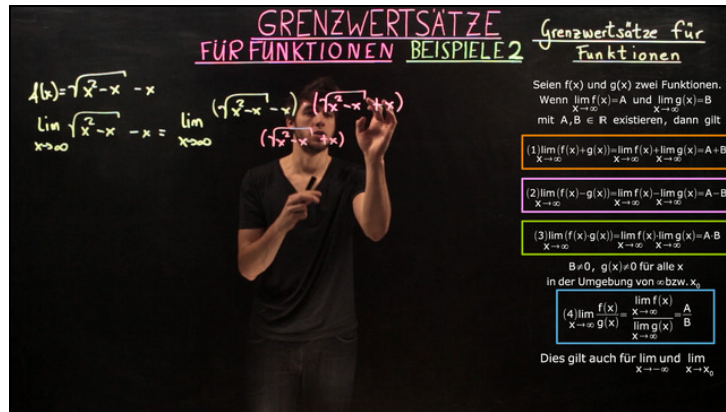 GRENZWERTSÄTZE
FÜR FUNKTIONEN BEISPIELE 2
f(x)=√(x²-x) -x
lim x→∞ √(x²-x) -x = lim x→∞ (√(x²-x) -x) (√(x²-x) +x)
(√(x²-x) +x)
Grenzwertsätze für
Funktionen
Seien f(x) und g(x) zwei Funktionen.
Wenn lim x→∞ f(x)=A und lim x→∞ g(x)=B
mit A,B ∈ ℝ existieren, dann gilt
(1) lim x→∞ (f(x)+g(x))=lim x→∞ f(x)+lim x→∞ g(x)=A+B
(2) lim x→∞ (f(x)−g(x))=lim x→∞ f(x)−lim x→∞ g(x)=A−B
(3) lim x→∞ (f(x)·g(x))=lim x→∞ f(x)·lim x→∞ g(x)=A·B
B≠0, g(x)≠0 für alle x
in der Umgebung von ∞ bzw. x₀
(4) lim x→∞ f(x)/g(x) = lim x→∞ f(x) / lim x→∞ g(x) = A/B
Dies gilt auch für lim x→−∞ und lim x→x₀